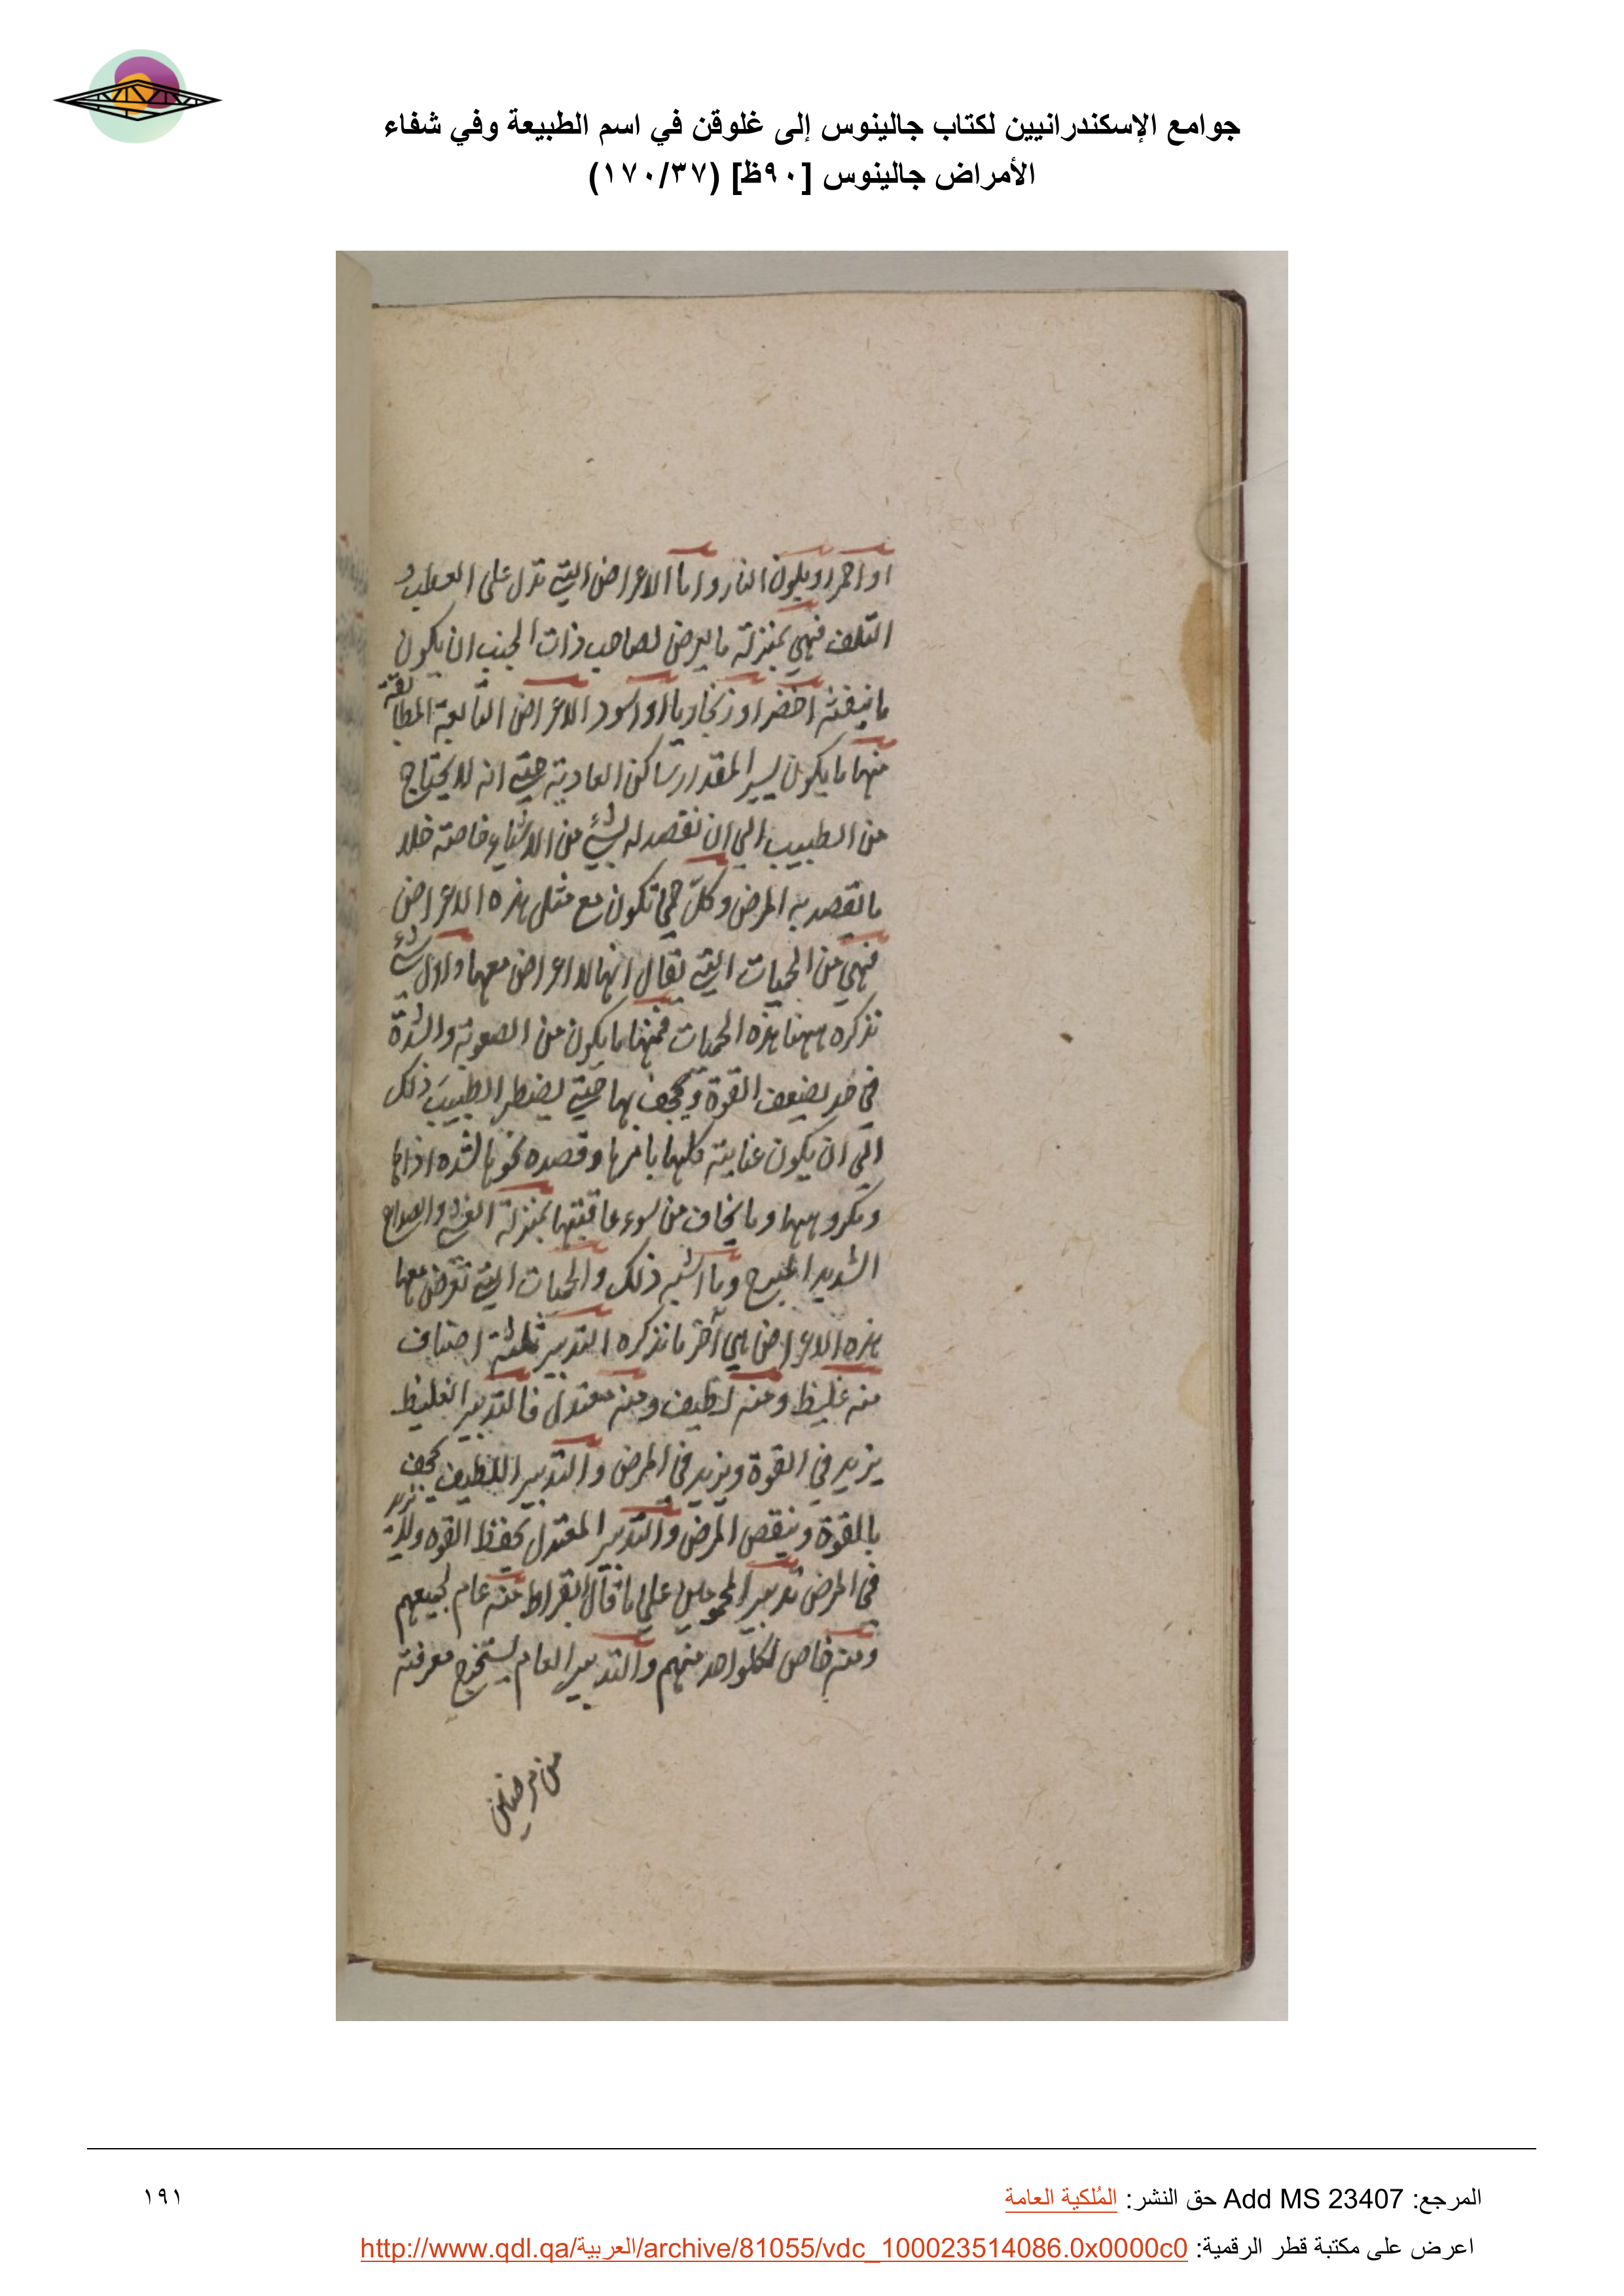 جوامع الإسكندرانيين لكتاب جالينوس إلى غلوقن في اسم الطبيعة وفي شفاء
الأمراض جالينوس [٩٠ظ] (١٧٠/٣٧)
او احمر او بلون النار واما الاعراض التي تدل على العطب و
التلف فهي بمنزلة ما يعرض لصاحب ذات الجنب ان يكون
ما ينفثه اخضر او زنجاريا او اسود الاعراض التابعة المطابقة
منها ما يكون يسير المقدار ساكن العادية حتي انه لا يحتاج
من الطبيب الي ان نقصد له لشئ من الاشياء خاصة خلا
ما نقصد به المرض وكل حمي تكون مع مثل هذه الاعراض
فهي من الحميات التي يقال انها لا اعراض معها واول شئ
نذكره ههنا هذه الحميات فمنها ما يكون من الصعوبة والشدة
في حد يضعف القوة ويجحف بها حتي يضطر الطبيب ذلك
الي ان يكون عنايته كلها بامرها وقصده نحوها لشده اذاها
ومكروهها وما يخاف من سوء عاقبتها بمنزلة الغشي والصداع
الشديد المبرح وما اشبه ذلك والحميات التي تعرض معها
هذه الاعراض هي آخر ما نذكره التدبير ثلثة اصناف
منه غليظ ومنه لطيف ومنه معتدل فالتدبير الغليظ
يزيد في القوة ويزيد في المرض والتدبير اللطيف يجحف
بالقوة وينقص المرض والتدبير المعتدل يحفظ القوه ولا يزيد
في المرض تدبير المحمومين علي ما قال ابقراط منه عام لجميعهم
ومنه خاص لكلواحد منهم والتدبير العام يستخرج معرفته
من مرضين
المرجع: Add MS 23407 حق النشر: المُلكية العامة
١٩١
اعرض على مكتبة قطر الرقمية: http://www.qdl.qa/العربية/archive/81055/vdc_100023514086.0x0000c0